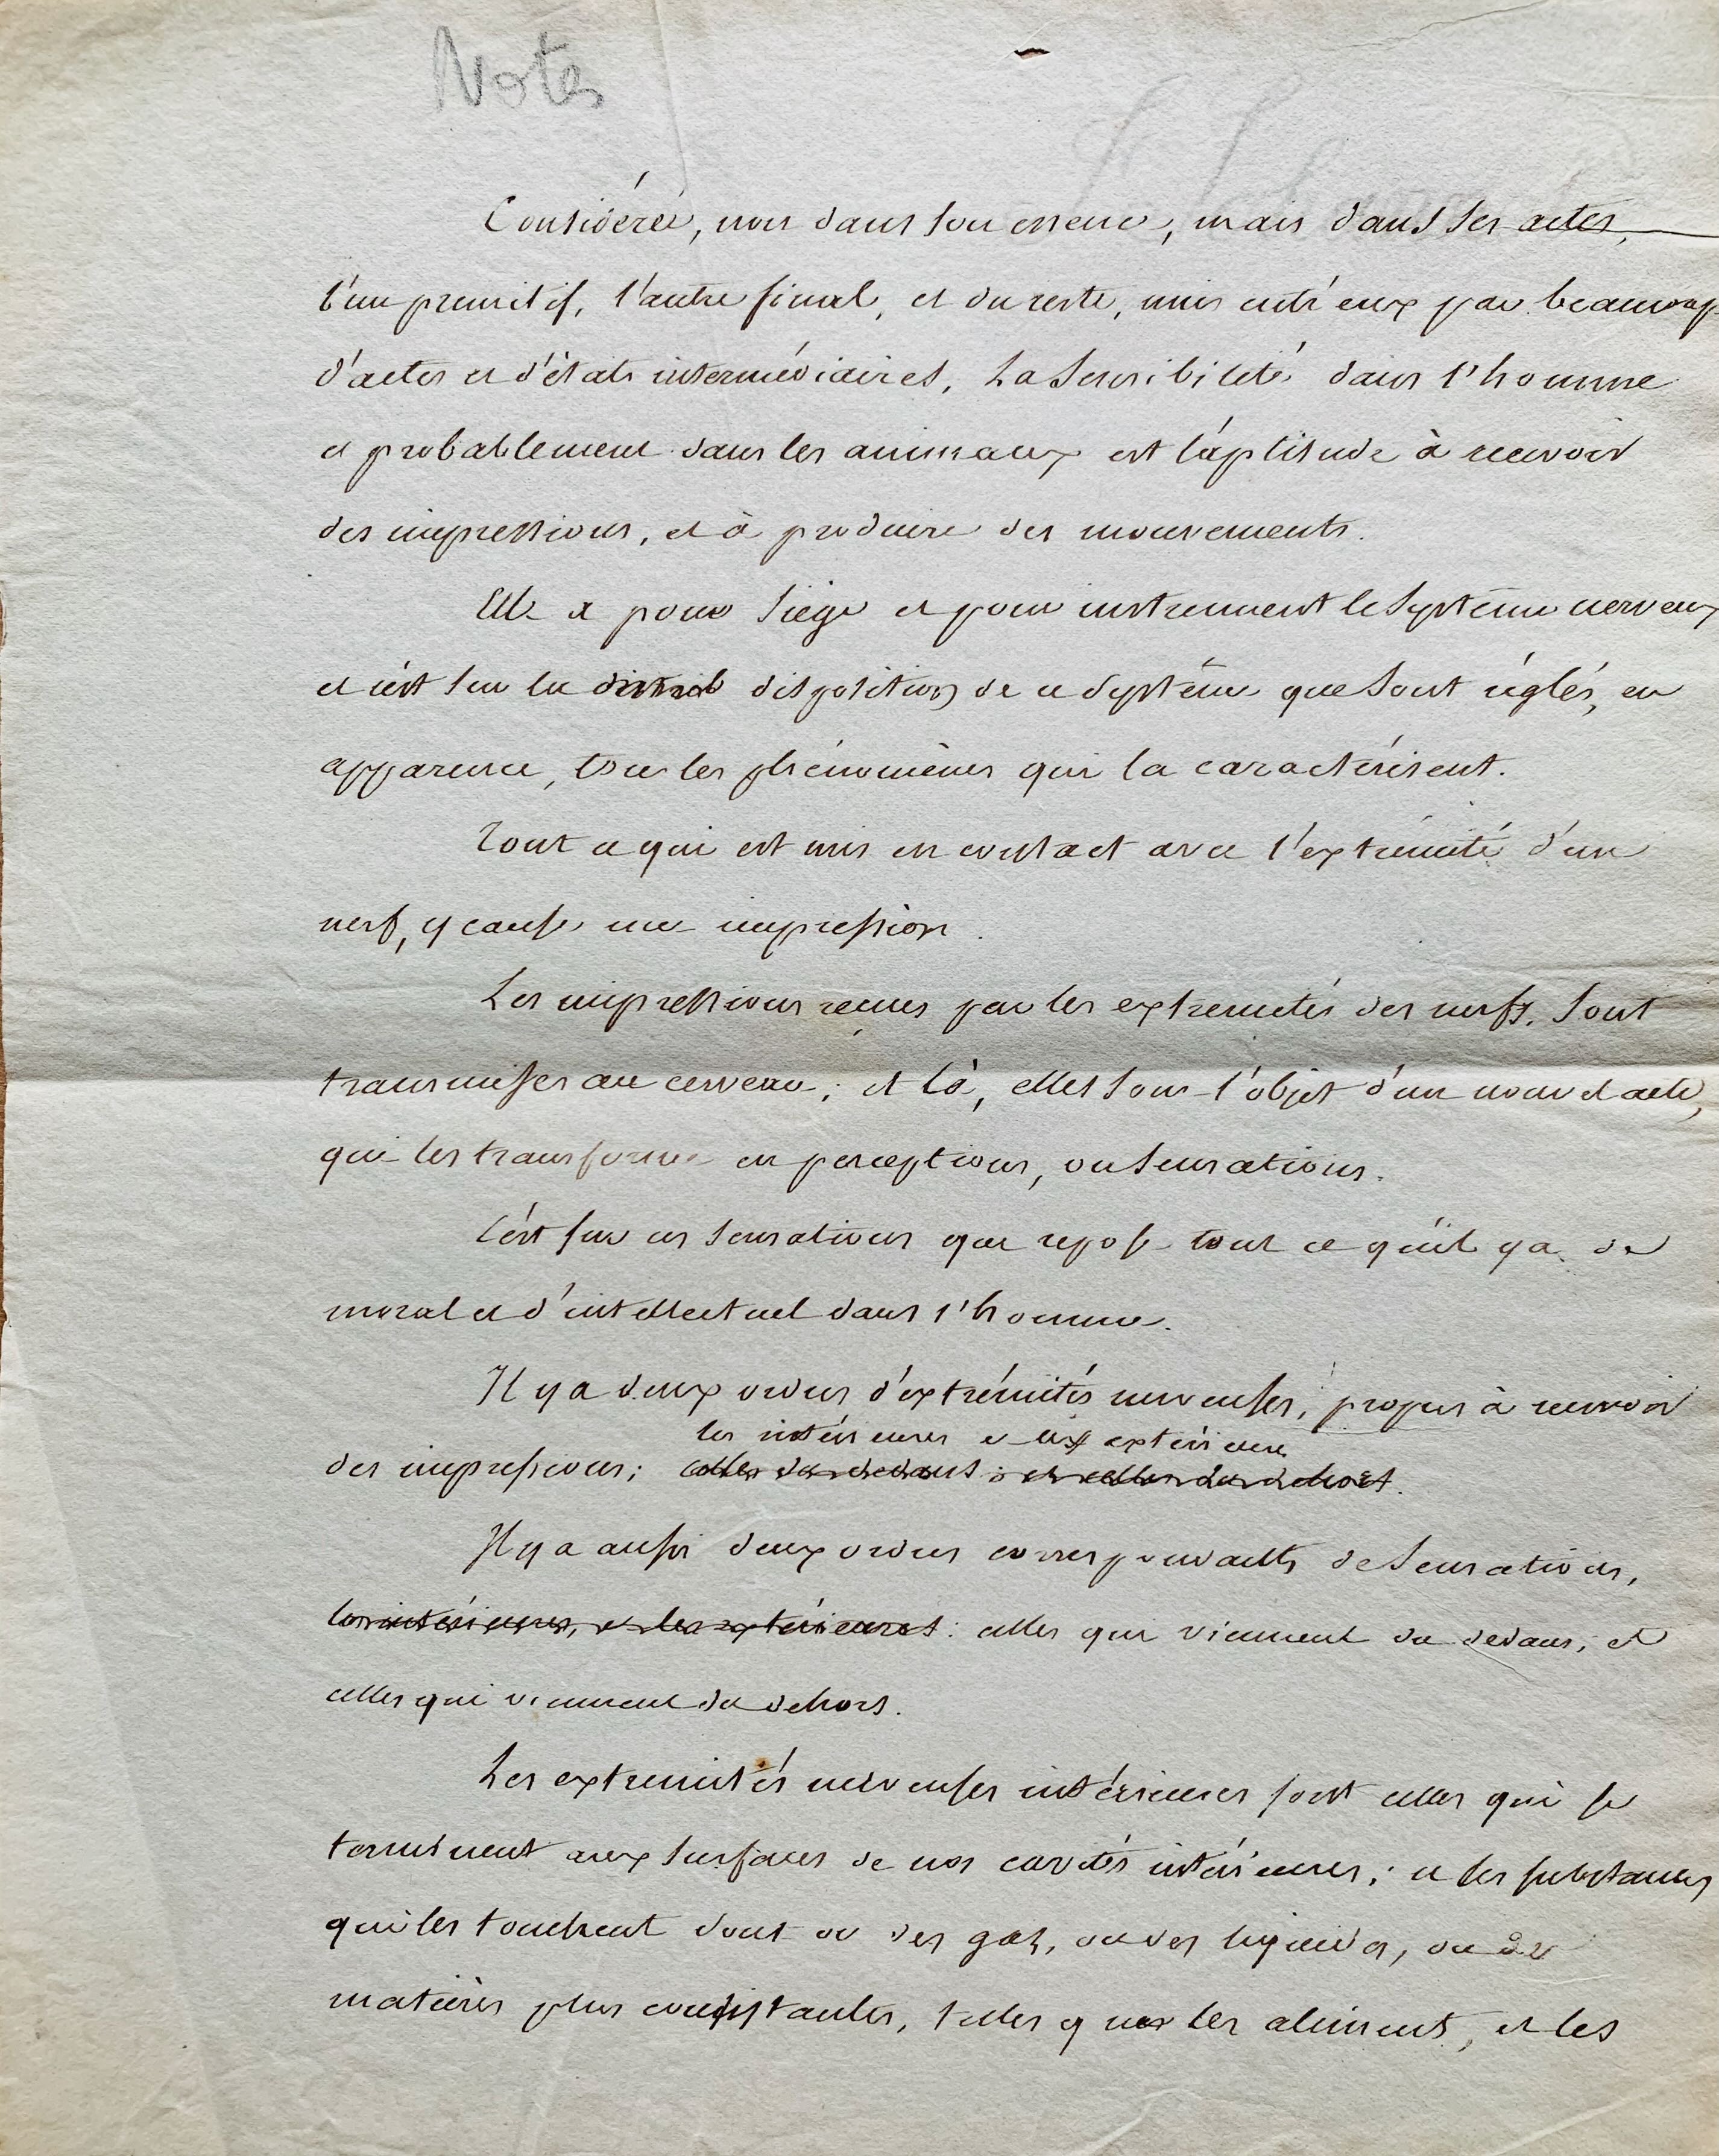 Notes
Considérée, non dans son essence, mais dans ses actes,
l'un primitif, l'autre final, et du reste, unis entr'eux par beaucoup
d'actes et d'états intermédiaires, La Sensibilité dans l'homme
et probablement dans les animaux est l'aptitude à recevoir
des impressions, et à produire des mouvements.
Elle a pour siège et pour instrument le système nerveux
et c'est sur la disposition de ce système que sont réglés, en
apparence, tous les phénomènes qui la caractérisent.
Tout ce qui est mis en contact avec l'extrémité d'un
nerf, y cause une impression.
Les impressions reçues par les extremités des nerfs, sont
transmises au cerveau; et là, elles sont l'objet d'un nouvel acte,
qui les transforme en perceptions, ou sensations.
C'est sur ces sensations que repose tout ce qu'il y a de
moral et d'intellectuel dans l'homme.
Il y a deux ordres d'extrémités nerveuses, propres à recevoir
les intérieures et les extérieures
des impressions; celles du dedans; et celles du dehors.
Il y a aussi deux ordres correspondants de sensations,
les intérieures, et les extérieures: celles qui viennent du dedans, et
celles qui viennent du dehors.
Les extremités nerveuses intérieures sont celles qui se
terminent aux surfaces de nos cavités intérieures; et les substances
qui les touchent sont ou des gaz, ou des liquides, ou des
matières plus consistantes, telles que les aliments, et les